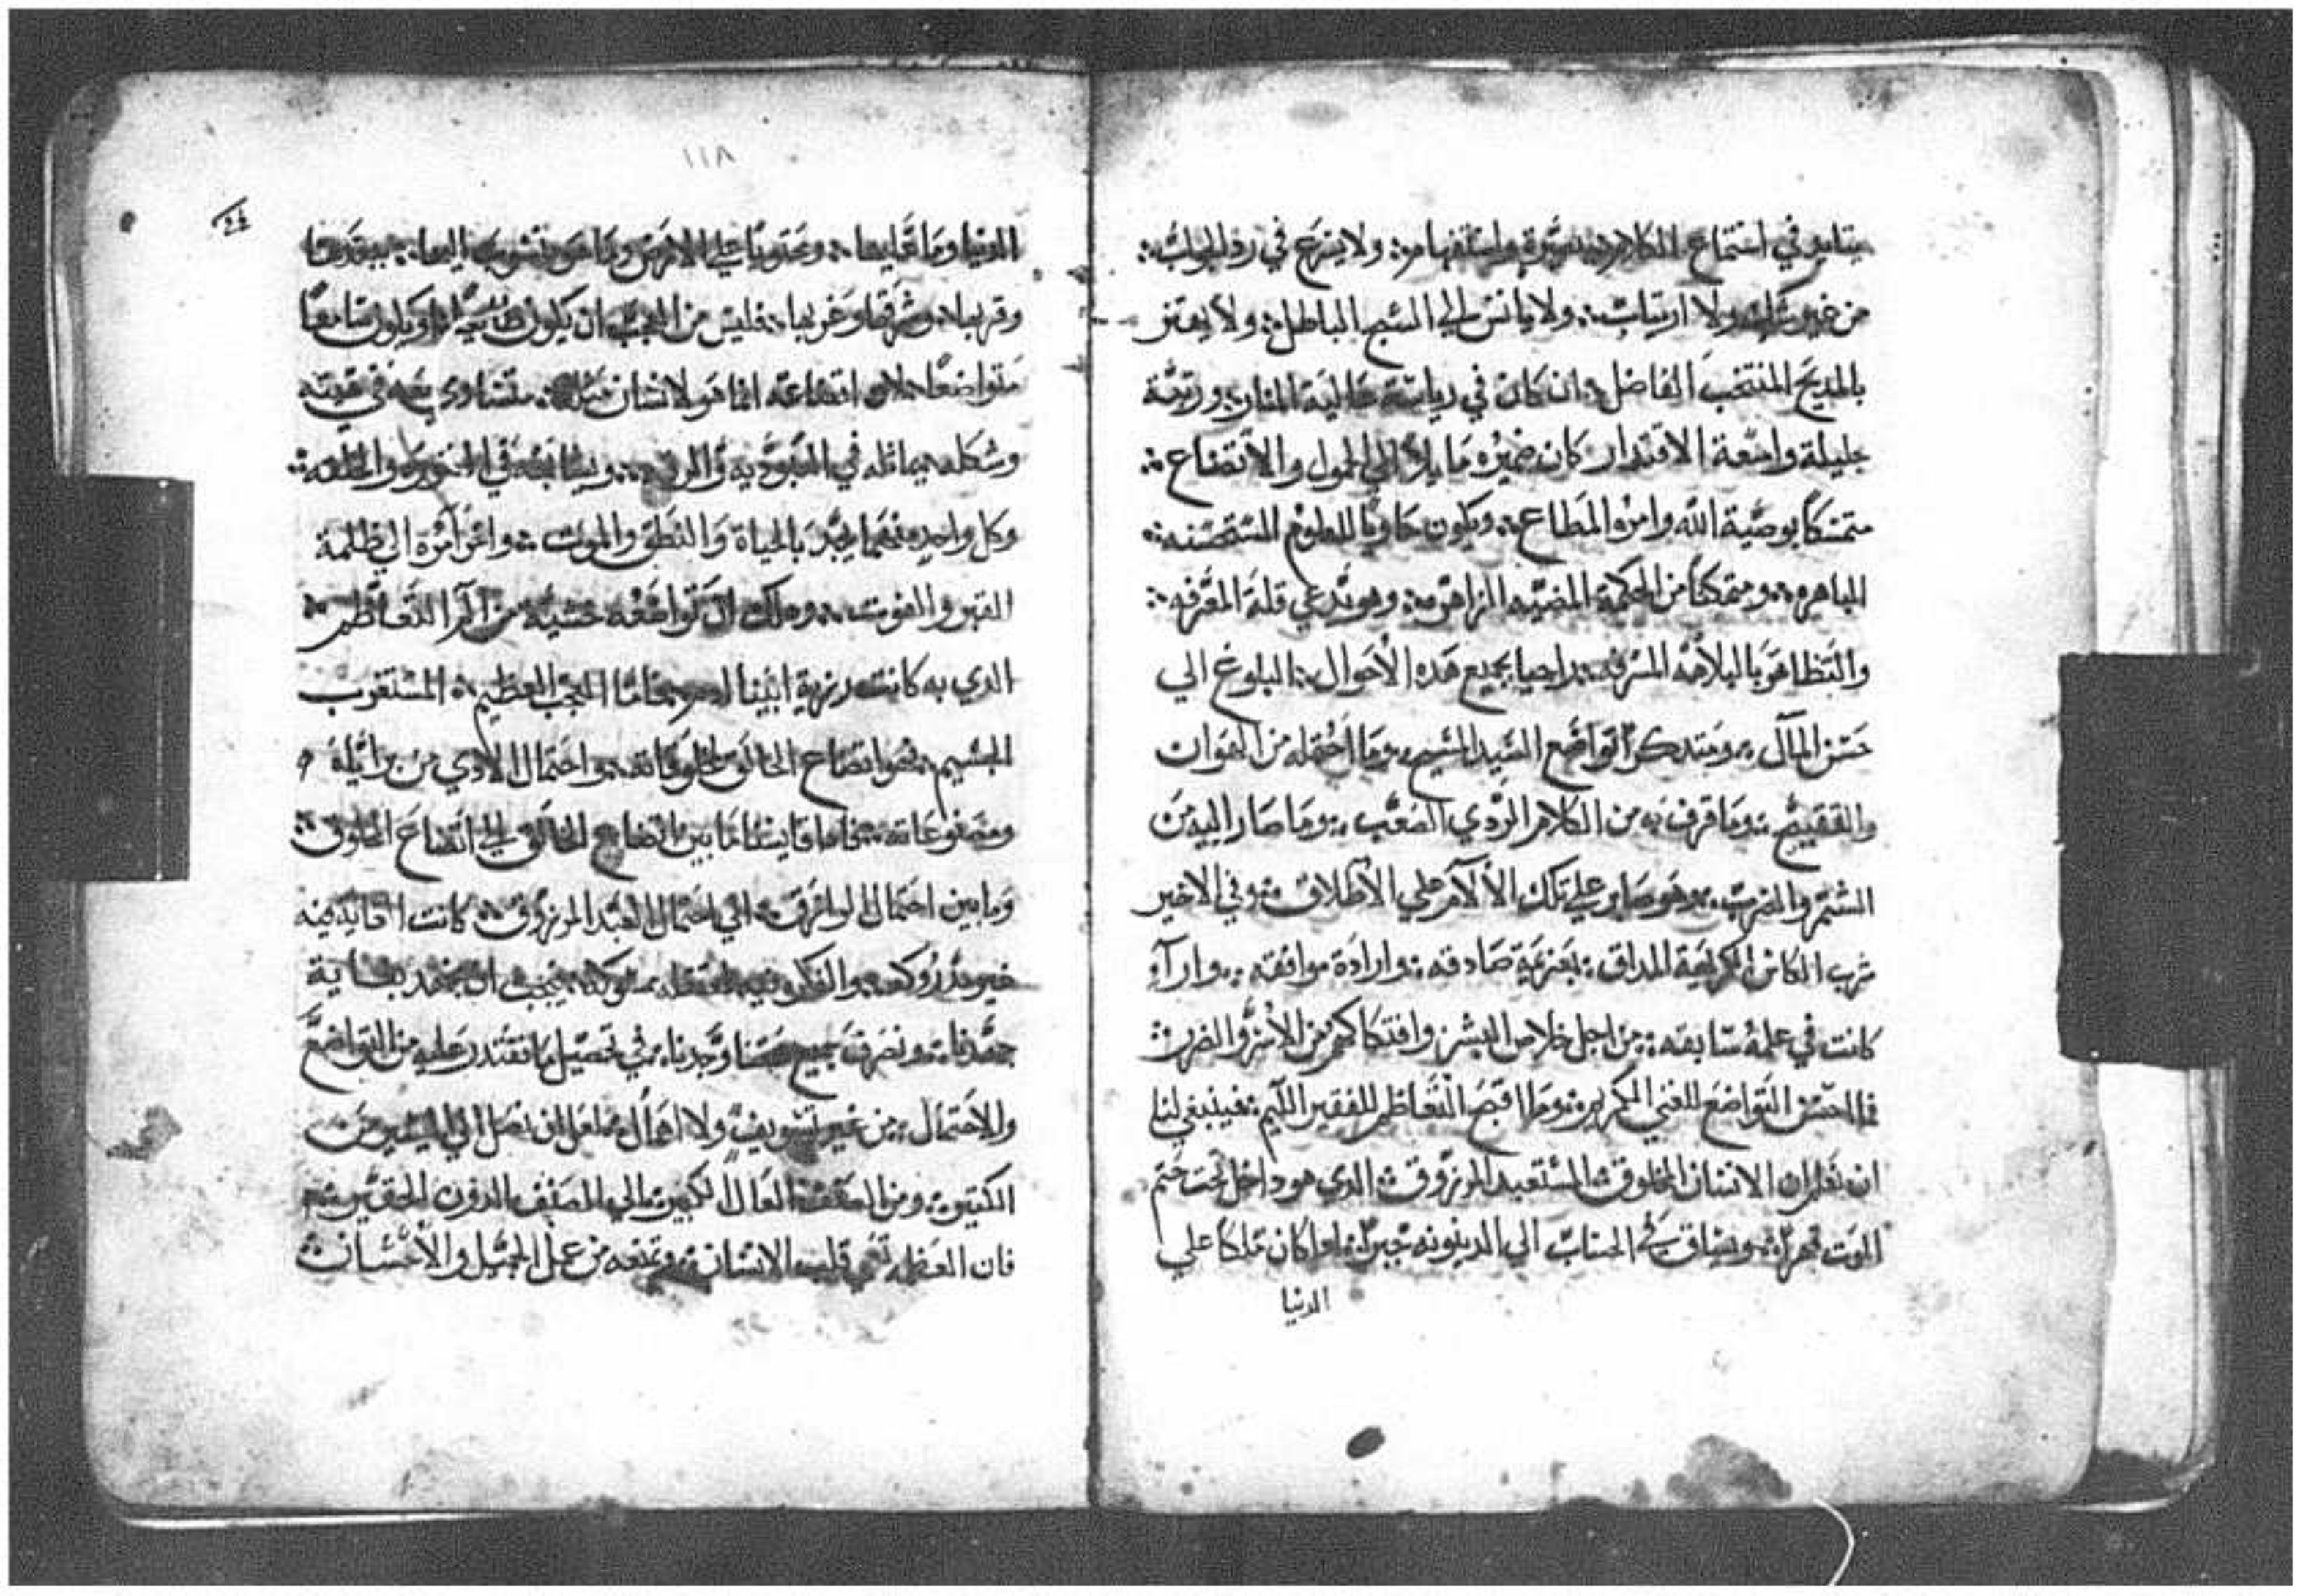 في استماع الكلام واستفهام ولا يسرع في رد الجواب
من غير شك ولا ارتياب ولا يانس الي السبح الباطل ولا يهتز
بالمديح المنتخب الفاضل ان كان في رياسة عالية المنار ورتبة
جليلة واسعة الاقتدار كان ضميره مايلا الي الخمول والاتضاع
متمسكا بوصية الله وامره المطاع ويكون حاويا للعلوم
الباهره ومتمكنا من الحكمة المضيه الزاهره وهو يدعي قلة المعرفه
والتظاهر بالبلاهه المسرفه راجيا بجميع هده الاحوال البلوغ الي
حسن المآل ويتدكر تواضع السيد المسيح وما احتمله من الهوان
والتقبيح وما قرف به من الكلام الردي الصعب وما صار اليه من
الشتم والضرب وهو صابر علي تلك الالام علي الاطلاق وفي الاخير
شرب الكاس الكريهة المداق بعزيمة صادقه وارادة موافقه وارآء
كانت في علمه سابقه من اجل خلاص البشر وافتكاكهم من الاسر والضرر
فما احسن التواضع للغني الكريم وما اقبح التعاظم للفقير اللئيم فينبغي لنا
ان نعلم ان الانسان المخلوق المستعبد المرزوق الدي هو داخل تحت ختم
الموت قهرا ويساق الي الحساب الي الدينونه جبرا ادا كان ملكا علي
الدنيا
١١٨
الدنيا وما عليها ومحتويا علي الارض وما هو منسوب اليها ببعدها
وقربها وشرقها وغربها فليس من العجب ان يكون او يكون سامعا
متواضعا لان اتضاعه انما هو لانسان مثله متساوي معه في
وشكله يماثله في العبوديه والرق ويشابهه في والخلقه
وكل واحد منهما بالحياة والنطق والموت واخر امره الي ظلمة
القبر والفوت ودلك ان تواضعه خشية من الم التعاظم
الدي به كانت رزية ابينا ادم فاما العجب العظيم المستغرب
الجسيم فهو اتضاع الخالق لمخلوقاته واحتمال الادي من براياه
ومصنوعاته فاما قايسنا ما بين اتضاع الخالق الي اتضاع المخلوق
وما بين احتمال الرازق الي احتمال العبد المرزوق كانت
غير مدروكه والفكر فيه فيجب ان نجهد بغاية
جهدنا ونصرف جميع وجدنا في تحصيل ما نقتدر عليه من التواضع
والاحتمال من غير تسويف ولا اهمال لعل ان نصل الي من
الكتير ومن العال الكبير الي الدون الحقير
فان العظمه قلب الانسان وتمنعه من عمل الجميل والاحسان